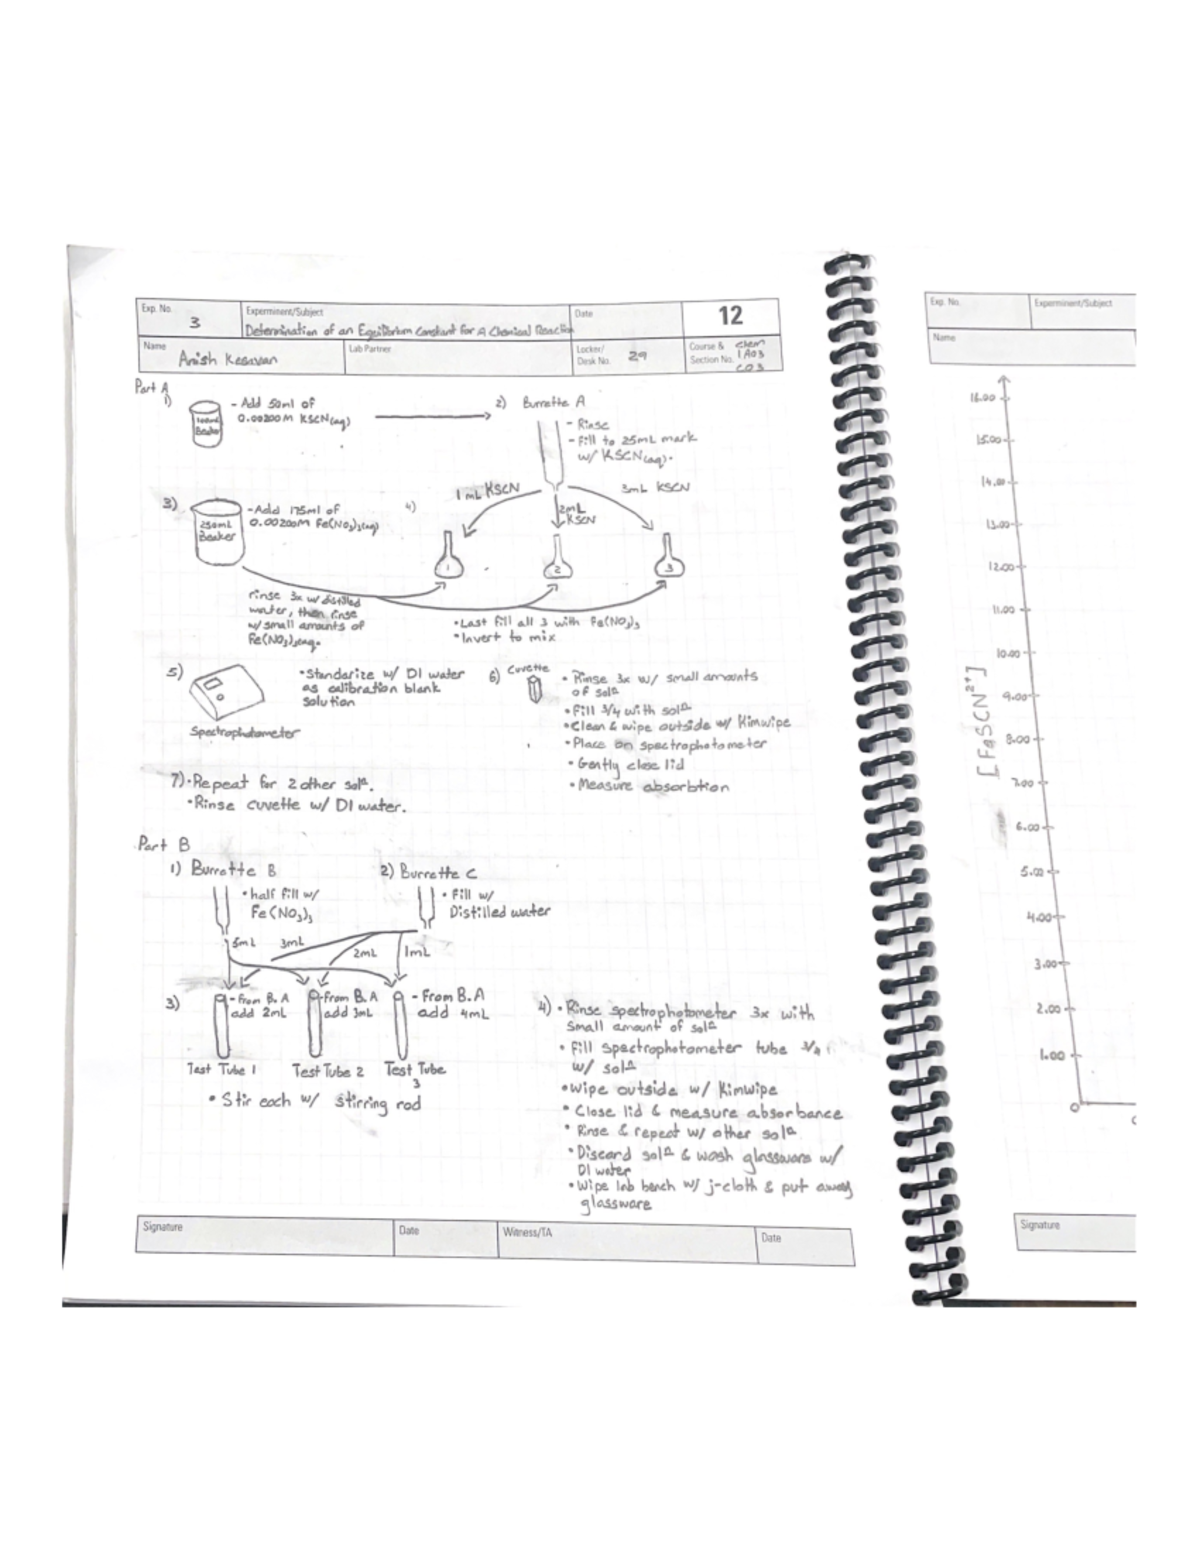 Exp. No.
3
Experminent/Subject
Determination of an Equilibrium Constant for A Chemical Reaction
Date
12
Name
Anish Kesavan
Lab Partner
Locker/
Desk No.
29
Course &
Section No.
Chem
1A03
C03
Part A
1)
100mL
Beaker
- Add 50ml of
0.00200M KSCN(aq)
2) Burrette A
- Rinse
- Fill to 25mL mark
w/ KSCN(aq).
1mL KSCN
2mL
KSCN
3mL KSCN
3)
250mL
Beaker
-Add 175ml of
0.00200M Fe(NO3)3(aq)
4)
1
2
3
rinse 3x w/ distilled
water, then rinse
w/ small amounts of
Fe(NO3)3(aq).
•Last fill all 3 with Fe(NO3)3
•Invert to mix
5)
Spectrophotometer
•Standarize w/ DI water
as calibration blank
solution
6) Cuvette
• Rinse 3x w/ small amounts
of solⁿ
•Fill 3/4 with solⁿ
•Clean & wipe outside w/ Kimwipe
•Place on spectrophotometer
•Gently close lid
•Measure absorbtion
7)•Repeat for 2 other solⁿ.
•Rinse cuvette w/ DI water.
Part B
1) Burrette B
•half fill w/
Fe(NO3)3
2) Burrette C
• Fill w/
Distilled water
5mL
3mL
2mL
1mL
3)
- From B.A
add 2mL
-From B.A
add 3mL
- From B.A
add 4mL
Test Tube 1
Test Tube 2
Test Tube
3
• Stir each w/ stirring rod
4) • Rinse spectrophotometer 3x with
small amount of solⁿ
• Fill spectrophotometer tube 3/4
w/ solⁿ
•Wipe outside w/ Kimwipe
• Close lid & measure absorbance
• Rinse & repeat w/ other solⁿ
•Discard solⁿ & wash glassware w/
DI water
•Wipe lab bench w/ j-cloth & put away
glassware
Signature
Date
Witness/TA
Date
Exp. No.
Experminent/Subject
Name
[FeSCN2+]
16.00
15.00
14.00
13.00
12.00
11.00
10.00
9.00
8.00
7.00
6.00
5.00
4.00
3.00
2.00
1.00
0
Signature